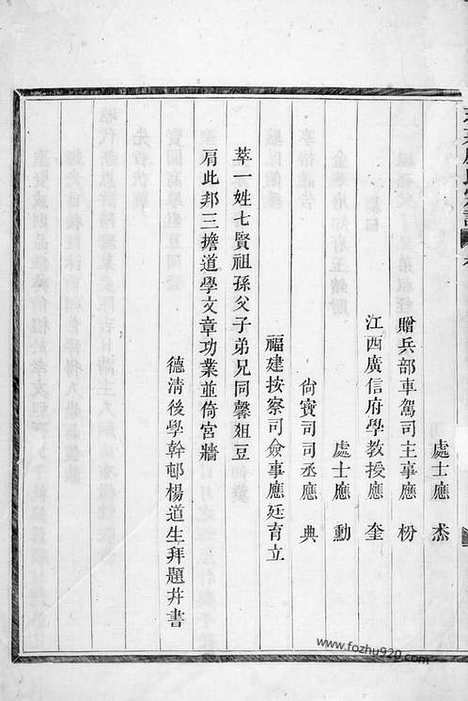 處士應杰
贈兵部車駕司主事應枌
江西廣信府學教授應奎
處士應勳
尙寶司司丞應典
福建按察司僉事應廷育立
萃一姓七賢祖孫父子弟兄同馨俎豆
肩此邦三擔道學文章功業並倚宮牆
德清後學幹邨楊道生拜題幷書
www.fozhu920.com